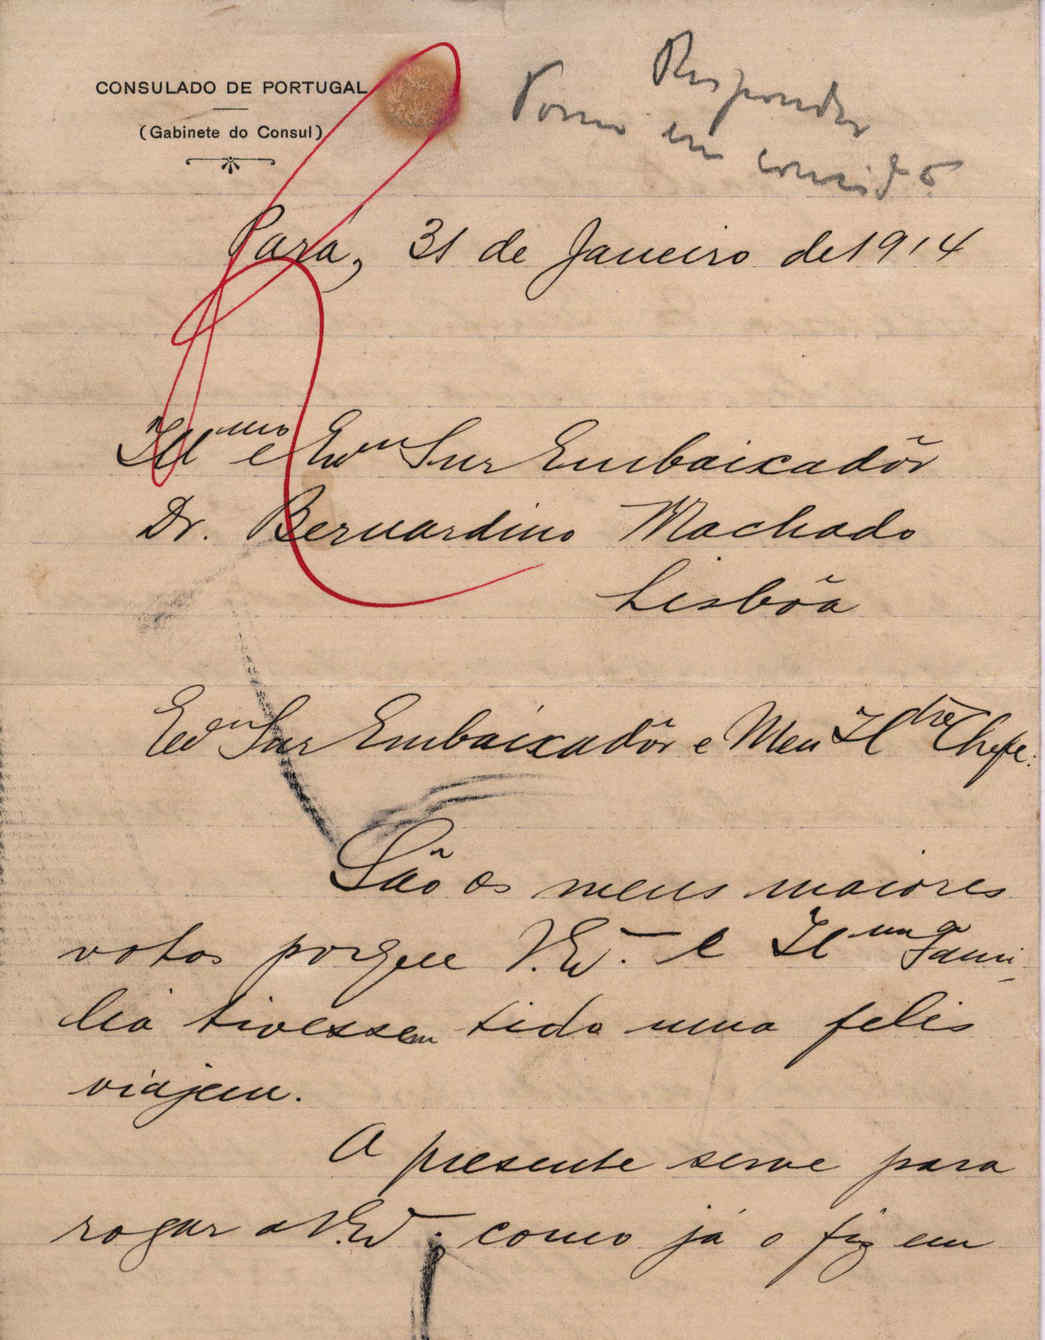 CONSULADO DE PORTUGAL
(Gabinete do Consul)
Responder
Tomo em consid.ão
Pará, 31 de Janeiro de 1914
Illmo e Exmo Snr Embaixadôr
Dr. Bernardino Machado
Lisbôa
Exmo Snr Embaixadôr e Meu Ildre Chefe:
São os meus maiores
votos porque V. Exª. e Ilma Fami-
lia tivessem tido uma felis
viajem.
A presente serve para
rogar a V. Exª. como já o fiz em